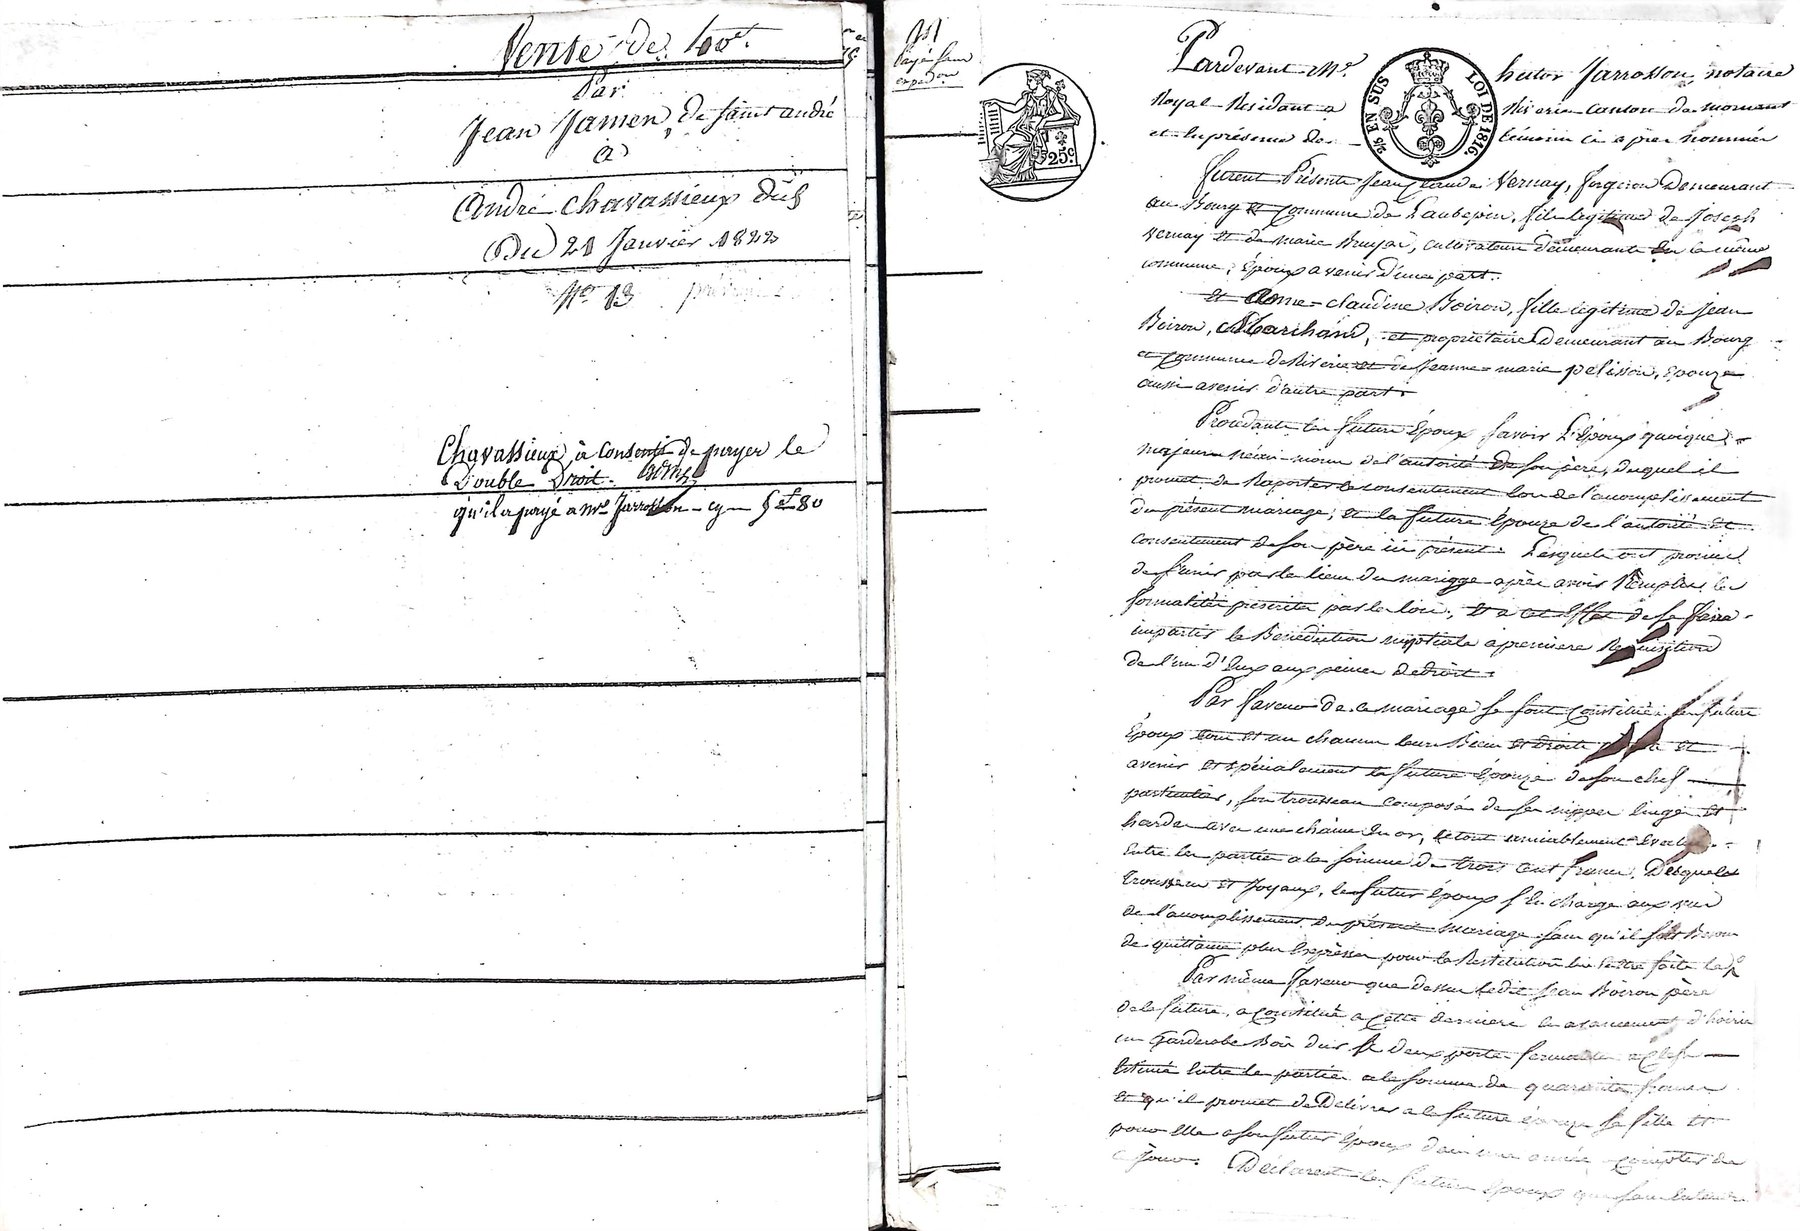 Vente de 100 et
Par
Jean Jamen, de saint andré
a
André chavassieux dud
Du 21 Janvier 1822
No. 13
Chavassieux, à consenti de payer le
Double Droit.
qu'il a payé a Me Jarrosson
25 EN SUS
LOI DE 1816.
25c.
Pardevant Me. hector Jarrosson notaire
Royal Residant a Riverie canton de mornant
et En présence des témoins ci après nommés
furent Présents Jean Claude Vernay, forgeron Demeurant
au Bourg et Commune de Laubepin, fils legitime de Joseph
Vernay et de marie Bruyas, cultivateurs demeurants en la même
commune, Epoux avenir d'une part.
et anne-claudine Boiron, fille legitime de Jean
Boiron, Marchand, et propriétaire Demeurant au Bourg
et Commune de Riverie et de Jeanne-marie pelisson, Epouze
aussi avenir d'autre part.
Procedants les futurs Epoux savoir L'Epoux quoique
majeur néan-moins de l'autorité de son père, duquel il
promet de Raporter le consentement lors de l'accomplissement
du présent mariage; et la future Epouze de l'autorité et
consentement de son père ici présent. Lesquels ont promis
de s'unir par le lien du mariage après avoir Remplies les
formalités prescrites par les lois, et a cet Effet de se faire
impartir la Bénédiction nuptiale a première Requisition
de l'un d'Eux aux peines de droit.
Par faveur de ce mariage se sont Constitués les future
Epoux tous et un chacuns leurs Biens et droits et
avenir et spécialement la future Epouze de son chef
particulier, son trousseau composé de ses nippes linges et
hardes avec une chaine En or, le tout amiablement Evalué
Entre les parties a la somme de trois cent francs. Desquels
trousseau et Joyaux, le futur Epoux s'En charge aux vue
de l'accomplissement du présent mariage sans qu'il soit Besoin
de quittance plus Expresse pour la Restitution En Être faite
Par même faveur que dessus ledit Jean Boiron père
de la future, a Constitué a Cette derniere En avancement d'hoirie
un Garderobe Bois dur a deux portes fermantes a Clefs
Estimé Entre les parties a la somme de quarante francs
et qu'il promet de Délivrer a la future épouze sa fille et
pour Elle a son futur Epoux dans une année, a compter de
ce jour. Déclarent les futurs Epoux que